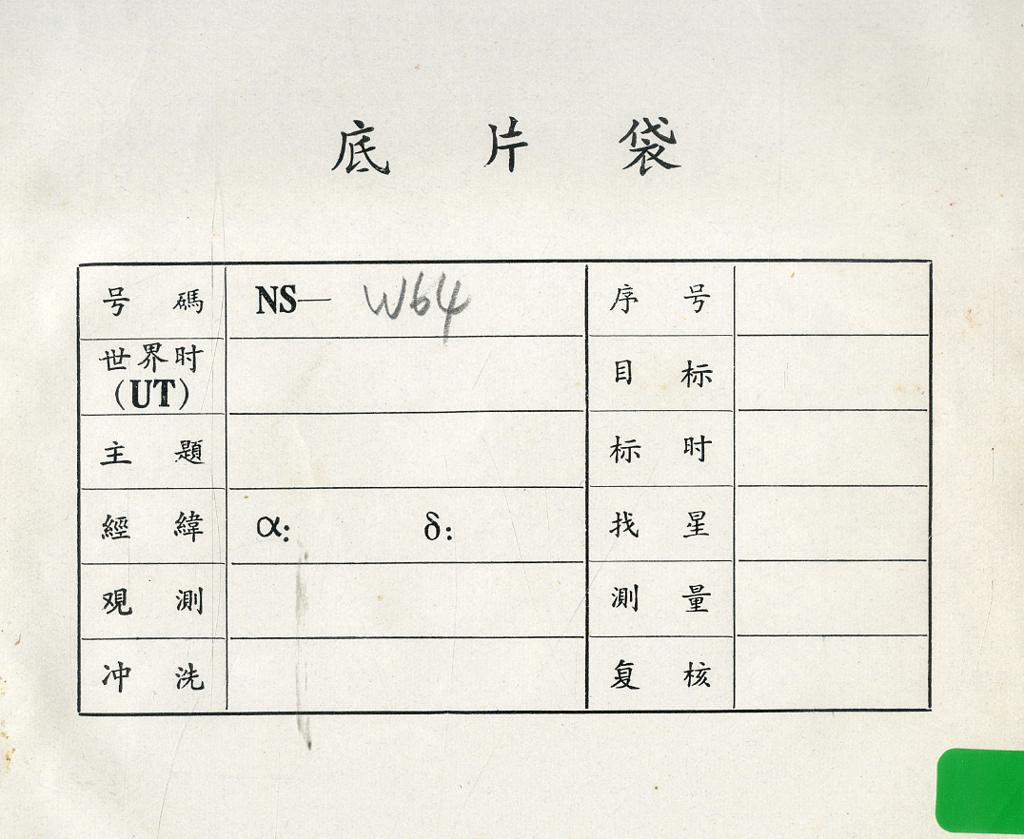 底片袋
号碼 NS— W64 序号
世界时 (UT) 目标
主题 标时
經緯 α: δ: 找星
观測 測量
冲洗 复核